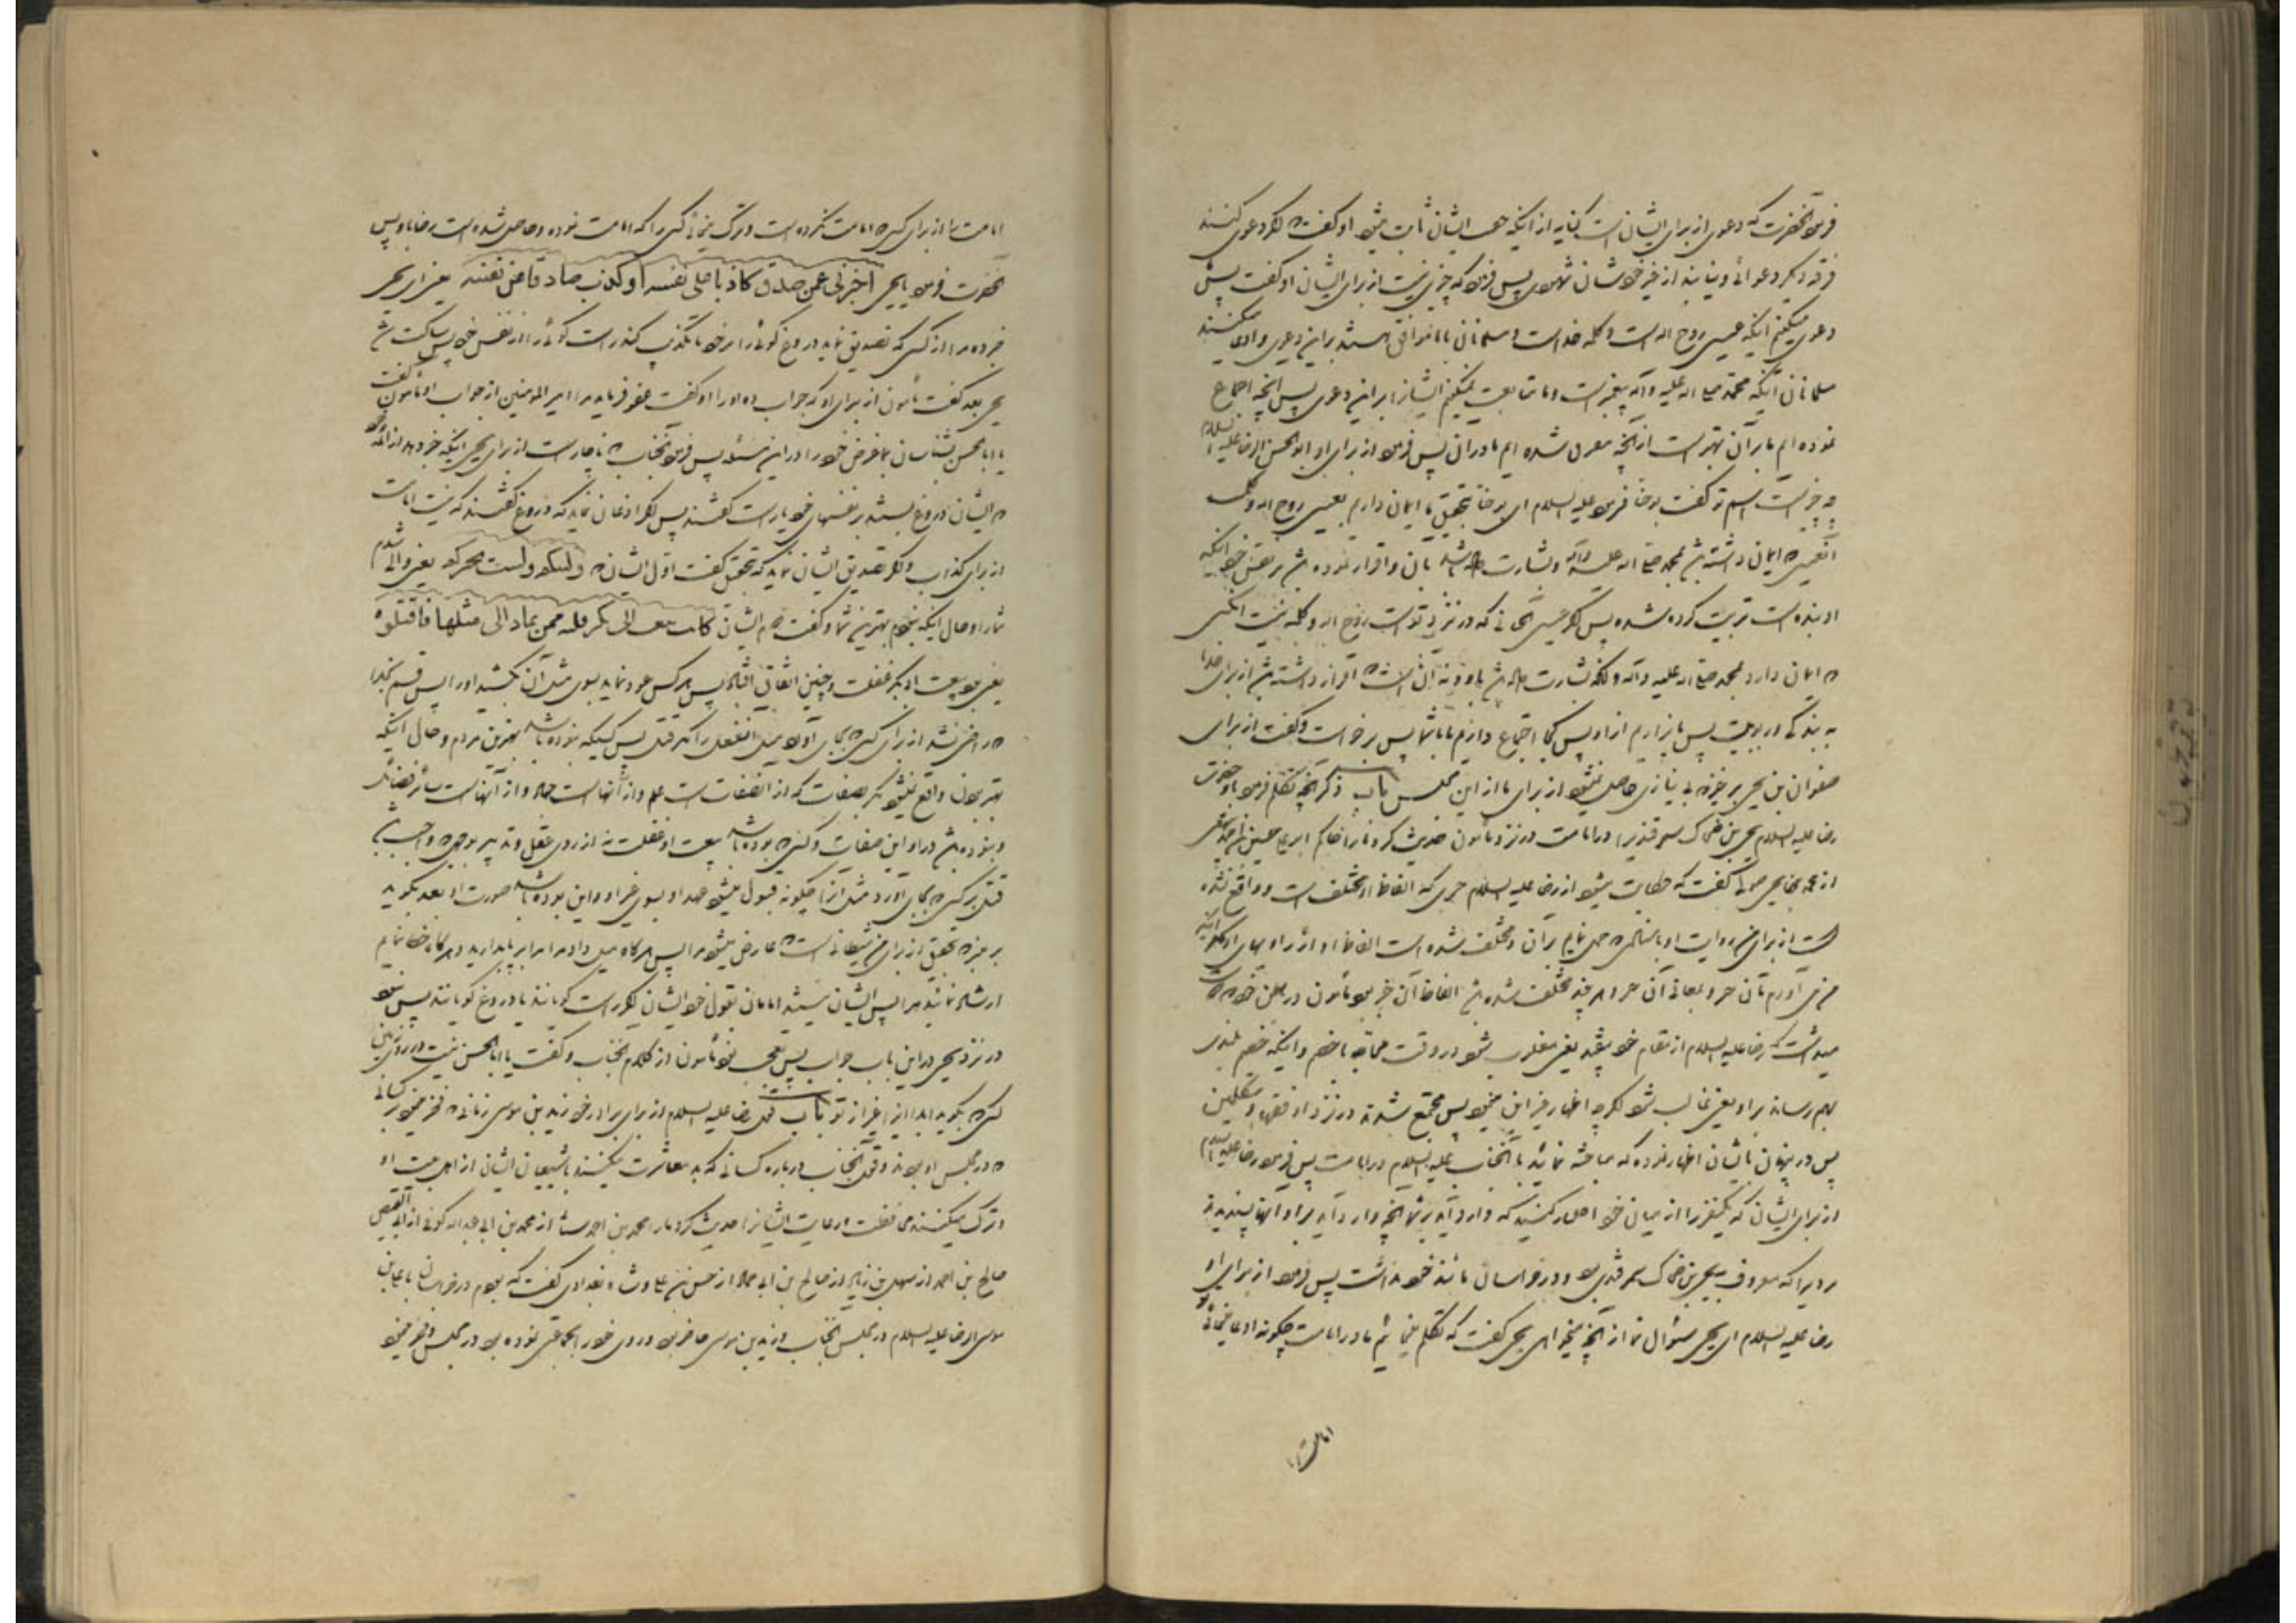 فرمود آنحضرت که دعوی از برای ایشان است کنایه از اینکه حق ایشان ثابت میشود او گفت که اگر دعوی کنند
فرقه دیگر دعوائی و نیابند از غیر خودشان شهودی پس فرمود که چیزی نیست از برای ایشان او گفت پس
دعوی میکنیم اینکه عیسی روح اله است و کلمه خداست و مسلمانان با ما موافق هستند بر این دعوی و ادعا میکنند
مسلمانان اینکه محمد صلی اله علیه وآله پیغمبر است و ما متابعت نمیکنیم ایشانرا بر این دعوی پس آنچه اجماع
نموده ایم ما بر آن بهتر است از آنچه شده ایم ما در آن پس فرمود از برای او ابو الحسن الرضا علیه السلام
چه چیز است اسم تو گفت یوحنا فرمود علیه السلام ای یوحنا بتحقیق ما ایمان داریم بعیسی روح اله و کلمه
آنعیسی که ایمان داشته باشد بمحمد صلی اله علیه وآله و بشارت داده باشد بآن و اقرار نموده باشد بر نفس خود اینکه
او بنده است تربیت کرده شده پس اگر عیسی که در نزد تو است روح اله و کلمه نیست آنکسی
که ایمان دارد بمحمد صلی اله علیه وآله و بشارت داده باشد باو و نه آن است که اقرار داشته باشد از برای خدا
به بندگی و ربوبیت پس ما بیزاریم از او پس کجا اجتماع داریم ما با شما پس برخواست و گفت از برای
صفوان بن یحیی برخیز که بی نیازی حاصل نمیشود از برای ما از این مجلس باب ذکر آنچه تکلم فرمود باو حضرت
رضا علیه السلام یحیی بن ضحاک سمرقندی را در امامت در نزد مأمون حدیث کرد ما را حاکم ابو علی حسین بن احمد بیهقی
از محمد بن یحیی صولی گفت که حکایت میشود از رضا علیه السلام خبری که الفاظ او مختلف است و واقع نشده
است از برای من روایت او باسنادی که عمل نمایم بر آن و مختلف شده است الفاظ او از راویهای او
من می آورم بآن خبر و بمعانی آن هر چند مختلف شده باشد الفاظ آن خبر بود مأمون در باطن خود که دوست
میداشت که رضا علیه السلام از مقام خود بیفتد یعنی مغلوب شود در وقت محاجه با خصم و اینکه خصم بلندی
بهم رساند بر او یعنی غالب شود اگرچه اظهار غیر این مینمود پس مجتمع شدند در نزد او فقها و متکلمین
پس در پنهان بایشان اظهار کرده که مباحثه نمائید با آنجناب علیه السلام در امامت پس فرمود رضا علیه السلام
از برای ایشان که یکنفر را از میان خود اختیار کنید که وارد آید بر شما آنچه وارد آید بر او آنها پسندیدند
مردیرا که معروف بیحیی بن ضحاک سمرقندی بود و در خراسان مانند خود نداشت پس فرمود از برای او
رضا علیه السلام ای یحیی سؤال نما از آنچه میخواهی یحیی گفت که تکلم مینمائیم ما در امامت چگونه ادعا مینمائی تو
امامت را
امامت را از برای کسی که امامت نکرده است و ترک مینمائی کسی را که امامت نموده و حاصل شده است رضا باو پس
آنحضرت فرمود یا یحیی اخبرنی عمن صدق کاذبا علی نفسه او کذب صادقا عن نفسه یعنی ای یحیی
خبر ده مرا از کسی که تصدیق نماید دروغ گوئی را بر خود یا تکذیب کند راست گوئی را از نفس خود پس ساکت شد
یحیی بعد گفت مأمون از برای او که جواب ده او را او گفت عفو فرماید مرا امیر المومنین از جواب او مأمون گفت
یا ابا الحسن بشناسان بما غرض خود را در این مسئله پس فرمود آنجناب که ناچار است از برای یحیی اینکه خبر دهد از ائمه خود
که ایشان دروغ بستند بر نفسهای خود یا راست گفتند پس اگر اذعان نماید که دروغ گفتند که نیست امامت
از برای کذاب و اگر تصدیق ایشان نماید که بتحقیق گفت اول ایشان که ولیتکم ولست بخیرکم یعنی والی شدم
شما را و حال اینکه نیستم بهترین شما و گفت دوم ایشان کانت بیعة ابی بکر فلتة فمن عاد الی مثلها فاقتلوه
یعنی بود بیعت ابو بکر غفلت و چنین اتفاقی افتاد پس هر کس عود نماید بسوی مثل آن بکشید او را پس قسم بخدا
که راضی نشد از برای کسی که بجای آورد مثل آنفعل را مگر قتل پس کسیکه نبوده باشد بهترین مردم و حال اینکه
بهتر بودن واقع نمیشود مگر بصفات که از آنصفات است علم و از آنهاست جهاد و از آنهاست سائر فضائل
و نبوده باشد در او این صفات و کسی که بوده باشد بیعت او غفلت نه از روی عقل و تدبیر بوجهی که واجب باشد
قتل بر کسی که بجای آورد مثل آنرا چگونه قبول میشود عهد او بسوی غیر او و این بوده باشد صورت او بعد بگوید
بر منبر که بتحقیق از برای من شیطانی است که عارض میشود مرا پس هرگاه میل دادم مرا بر پا بدارید و هرگاه خطا نمایم
ارشاد نمائید مرا پس ایشان نیستند امامان بقول خود ایشان اگر راست گویانند یا دروغ گویانند پس نبود
در نزد یحیی در این باب جواب پس تعجب نمود مأمون از کلام آنجناب و گفت یا ابا الحسن نیست در روی زمین
کسی که بگوید این را غیر از تو باب قول رضا علیه السلام از برای برادر خود زید بن موسی زمانی که فخر مینمود بر کسانی
که در مجلس او بودند و قول آنجناب درباره کسانی که بد معاشرت میکنند با شیعیان ایشان از اهل بیت او
و ترک میکنند محافظت و رعایت ایشانرا حدیث کرد ما را محمد بن احمد از محمد بن ابی عبداله کوفی از ابی الفیض
صالح بن احمد از سهل بن زیاد از صالح بن ابی حماد از حسن بن علی وشاء بغدادی گفت که بودم در خراسان با علی بن
موسی الرضا علیه السلام در مجلس آنجناب و زید بن موسی حاضر بود و روی خود را بجماعتی نموده بود در مجلس و فخر مینمود